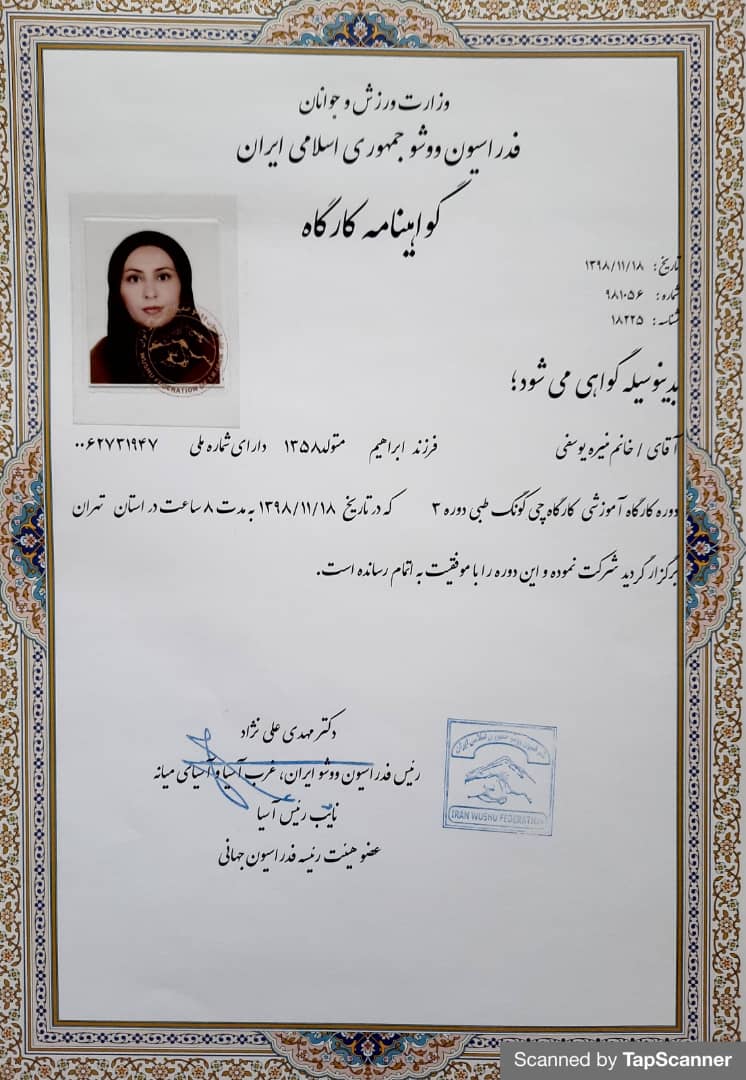 وزارت ورزش و جوانان
فدراسیون ووشو جمهوری اسلامی ایران
گواهینامه کارگاه
تاریخ: ۱۳۹۸/۱۱/۱۸
شماره: ۹۸۱۰۵۶
شناسه: ۱۸۲۲۵
بدینوسیله گواهی می شود؛
آقای / خانم منیره یوسفی فرزند ابراهیم متولد ۱۳۵۸ دارای شماره ملی ۰۰۶۲۷۳۱۹۴۷
دوره کارگاه آموزشی کارگاه چی کونگ طبی دوره ۳ که در تاریخ ۱۳۹۸/۱۱/۱۸ به مدت ۸ ساعت در استان تهران
برگزار گردید شرکت نموده و این دوره را با موفقیت به اتمام رسانده است.
دکتر مهدی علی نژاد
رئیس فدراسیون ووشو ایران، غرب آسیا و آسیای میانه
نایب رئیس آسیا
عضو هیئت رئیسه فدراسیون جهانی
فدراسیون ووشو جمهوری اسلامی ایران
IRAN WUSHU FEDERATION
WUSHU FEDERATION
Scanned by TapScanner